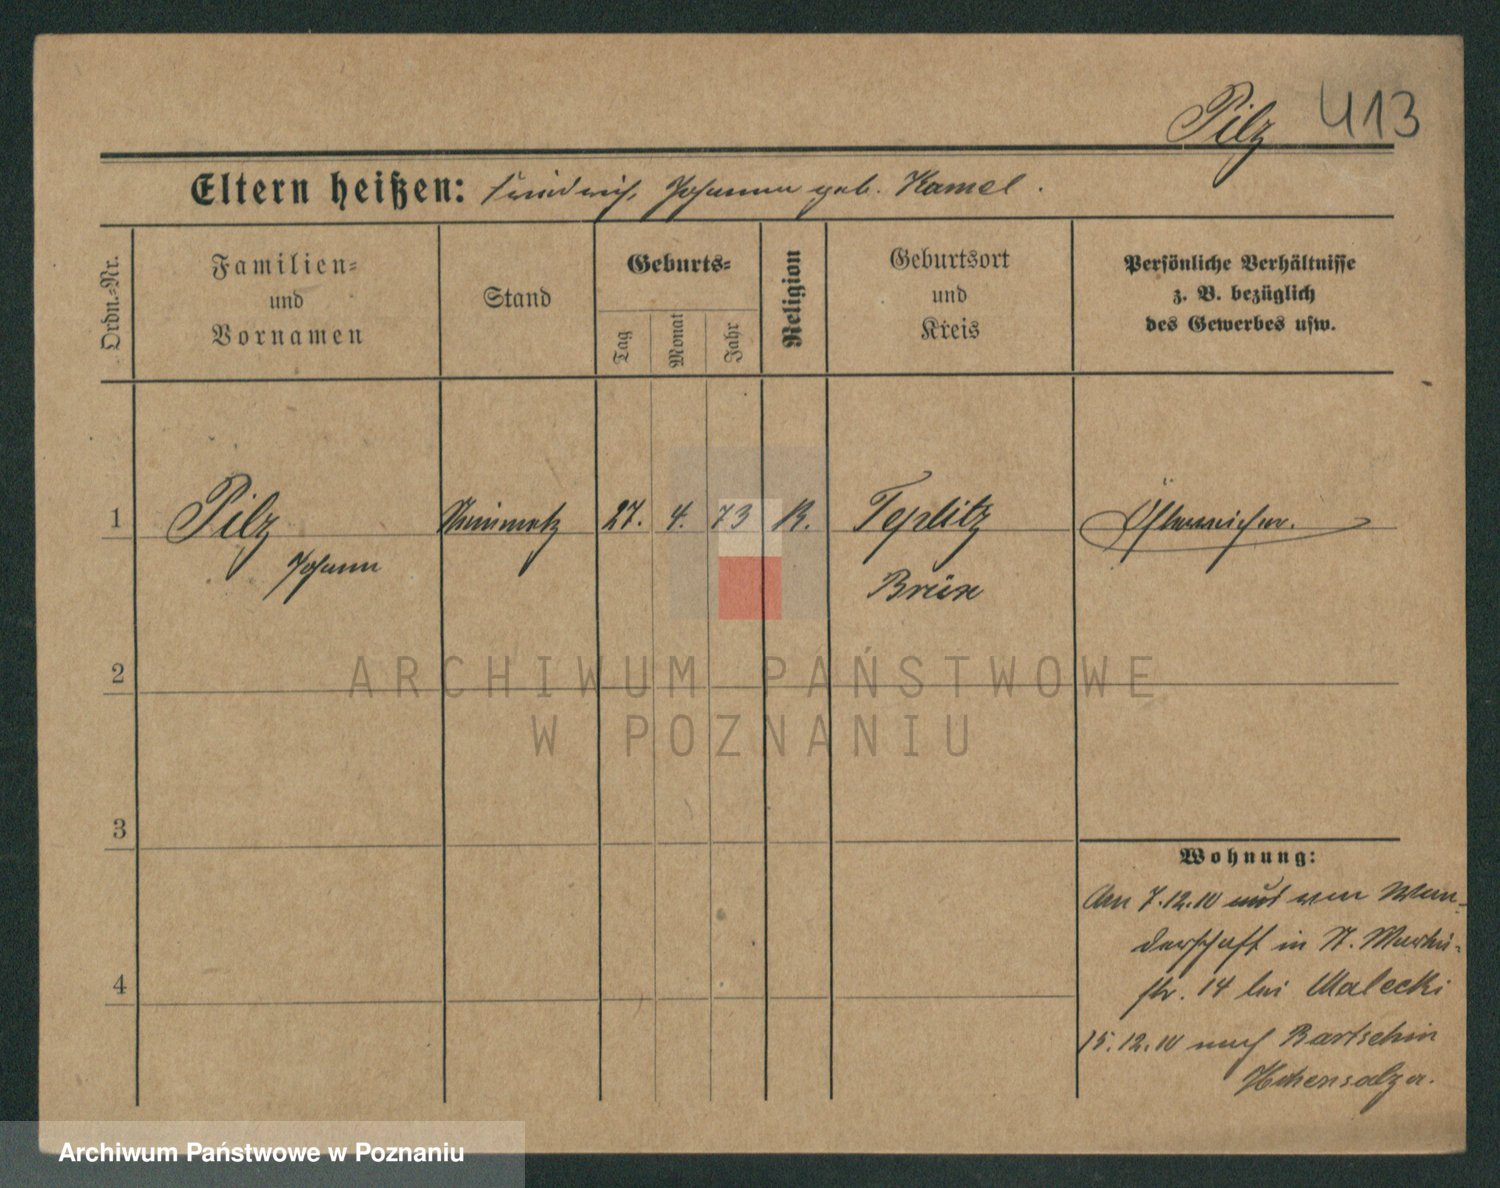 Pilz 413
Eltern heißen: Friedrich, Johanna geb. Kamel.
Ordn.-Nr.
Familien-
und
Vornamen
Stand
Geburts-
Tag
Monat
Jahr
Religion
Geburtsort
und
Kreis
Persönliche Verhältnisse
z. B. bezüglich
des Gewerbes usw.
1 Pilz Steinmetz 27. 4. 73 K. Teplitz Österreicher.
Johann Brüx
ARCHIWUM PAŃSTWOWE
W POZNANIU
2
3
4
Wohnung:
Am 7.12.10 von Wan-
derschaft in St. Martin-
str. 14 bei Malecki
15.12.10 nach Bartschin
Hohensalza.
Archiwum Państwowe w Poznaniu